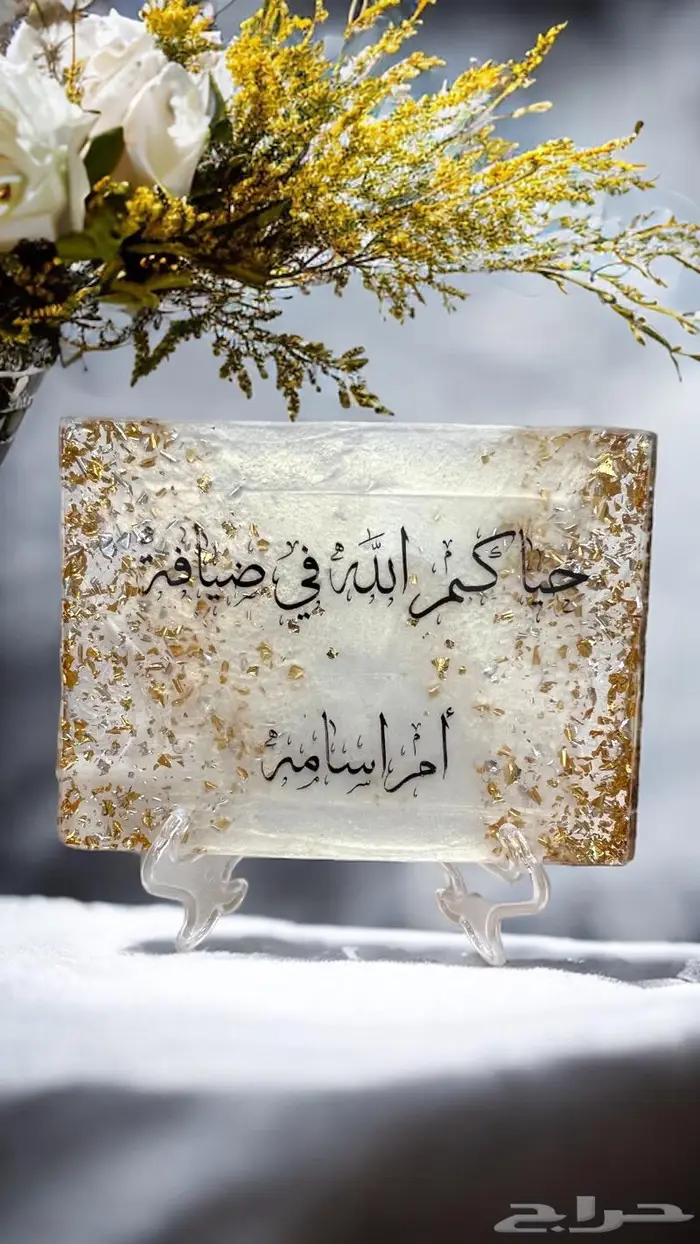 حياكم الله في ضيافة
أم اسامه
حراج